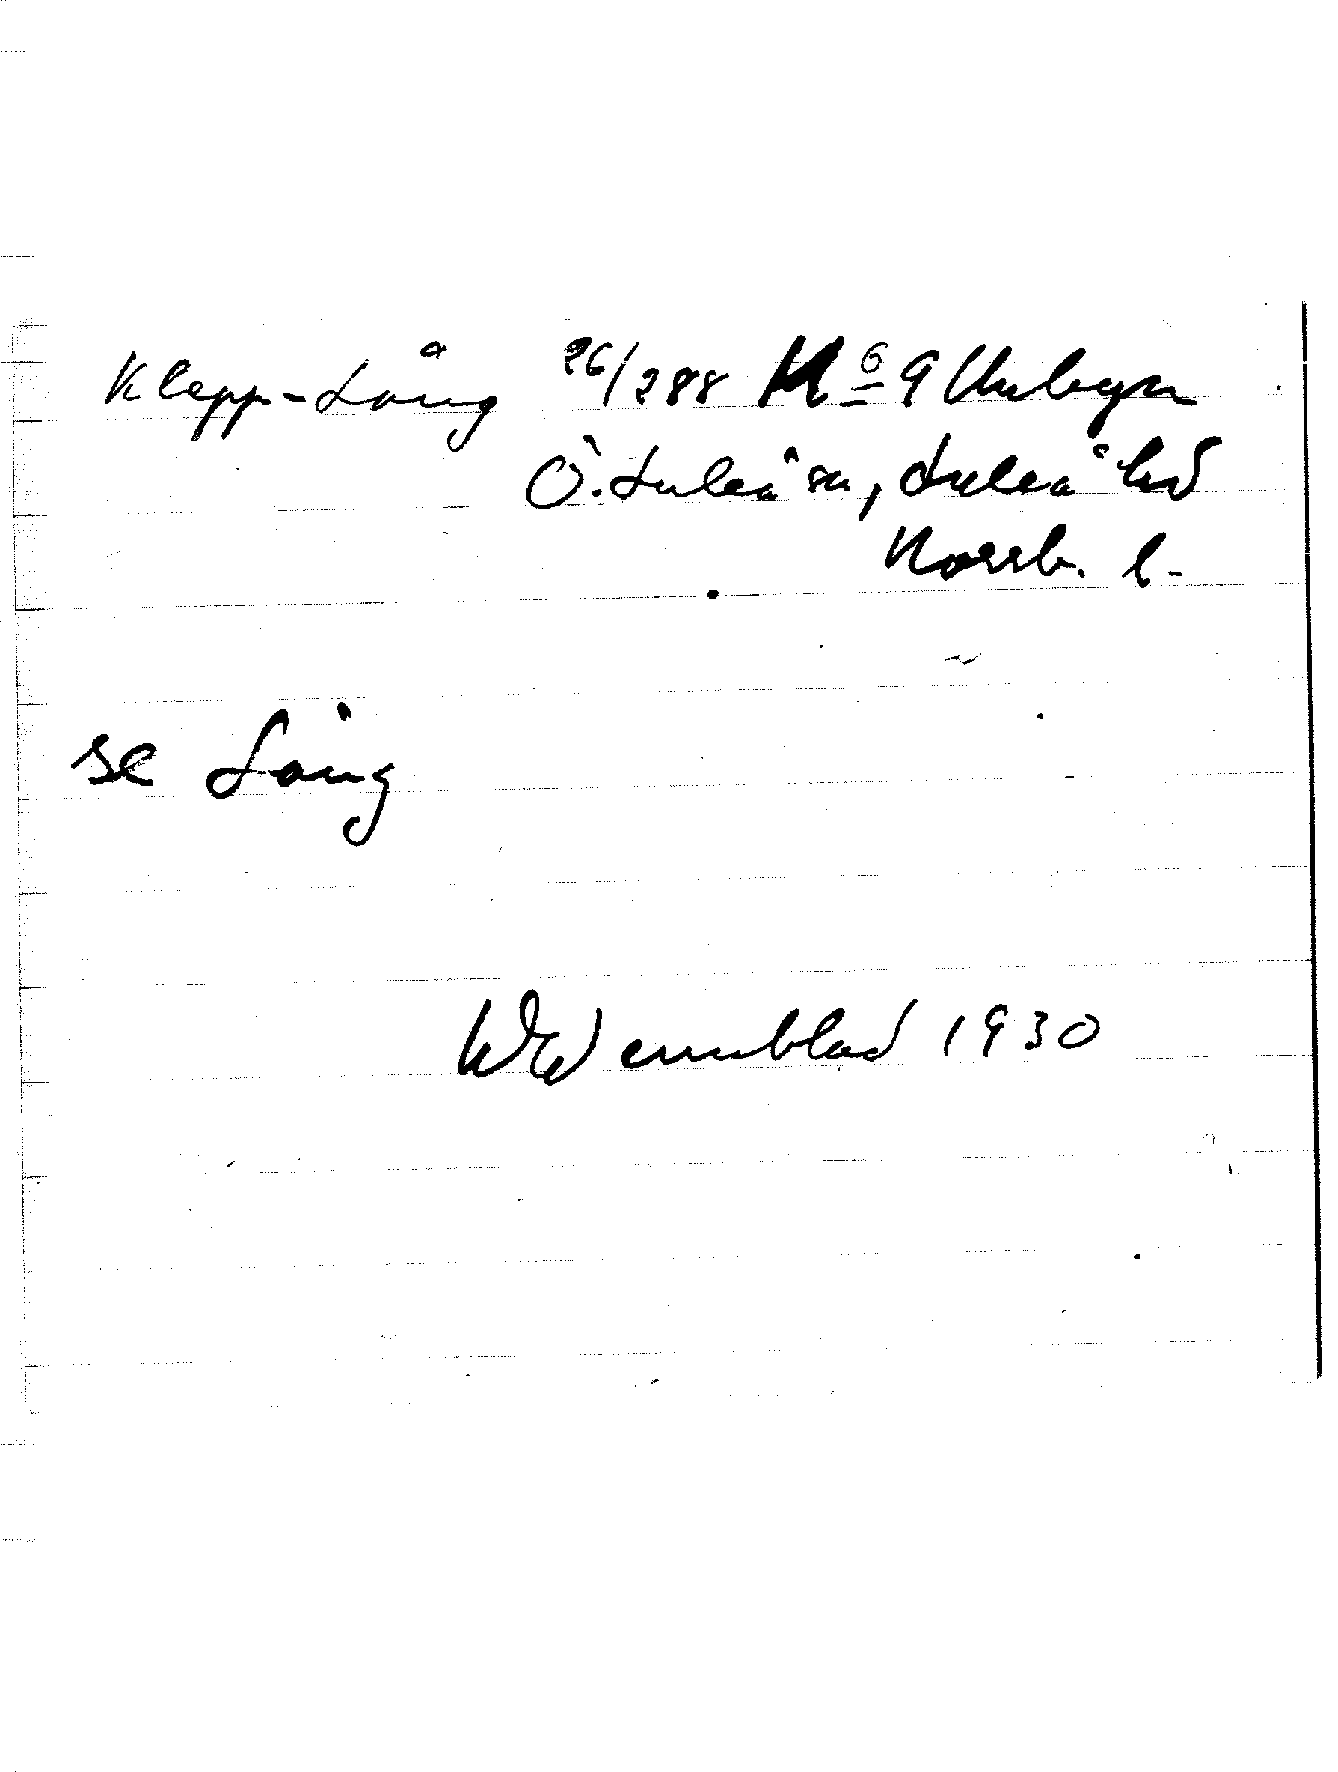 Klepp-Lång 26/288 No 9 Unbyn
Ö. Luleå sn, Luleå hd
Norrb. l.
se Lång
W Wennblad 1930